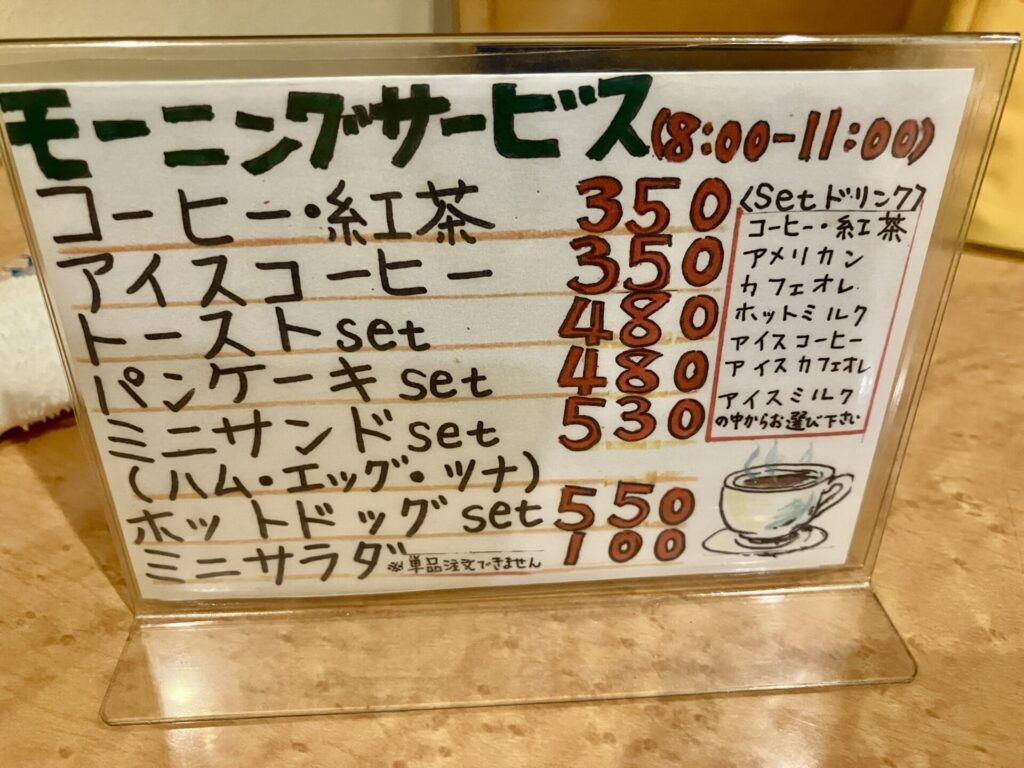 モーニングサービス(8:00-11:00)
コーヒー・紅茶 350
アイスコーヒー 350
トーストset 480
パンケーキset 480
ミニサンドset 530
(ハム・エッグ・ツナ)
ホットドッグset 550
ミニサラダ ※単品注文できません 100
〈Setドリンク〉
コーヒー・紅茶
アメリカン
カフェオレ
ホットミルク
アイスコーヒー
アイスカフェオレ
アイスミルク
の中からお選び下さい